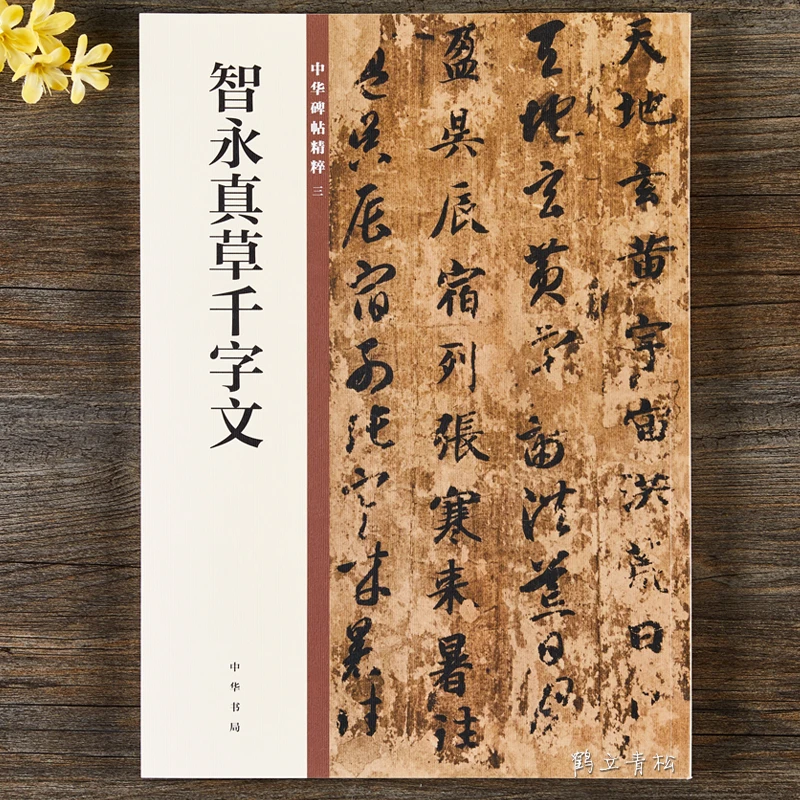 智永真草千字文
中华书局
中华碑帖精粹 三
天地玄黄宇宙洪荒日月
天地玄黄宇宙洪荒日月
盈昃辰宿列張寒来暑往
盈昃辰宿列張寒来暑往
鹤立青松